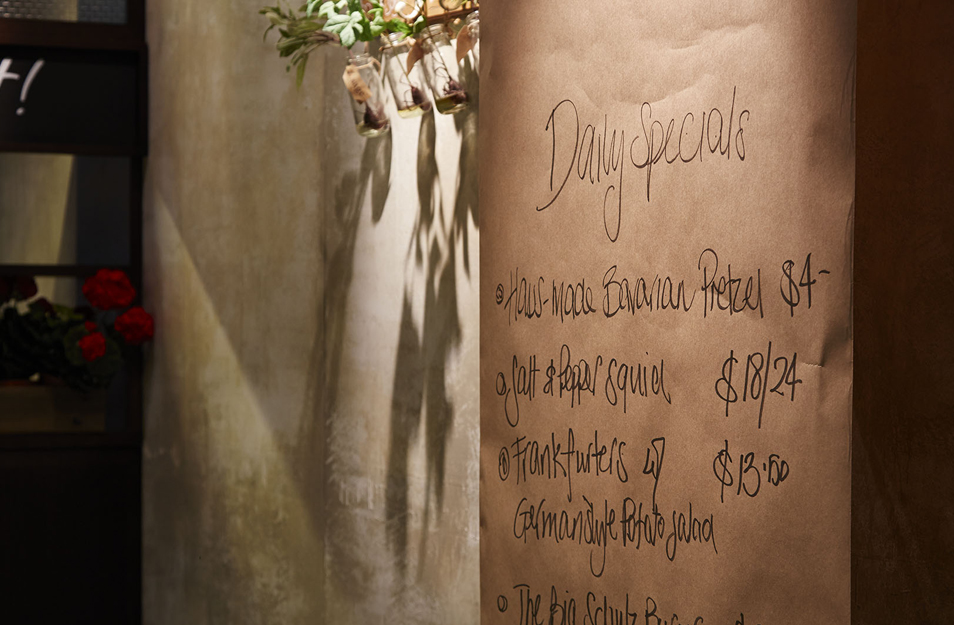 !
Daily Specials
Haus-made Bavarian Pretzel $4-
Salt & Pepper Squid $18/24
Frankfurters w $13.50
Germanstyle Potato salad
The Big Schutz